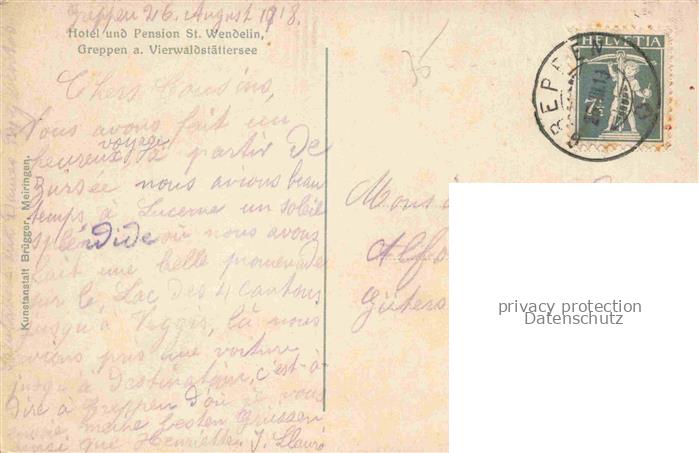 Greppen 26. August 1918.
Hotel und Pension St. Wendelin,
Greppen a. Vierwaldstättersee
Chers Cousins,
Vous avons fait un
heureux voyage, à partir de
Sursée nous avions beau
temps à Lucerne un soleil
splendide où nous avons
fait une belle promenade
sur le Lac des 4 Cantons
jusqu'à Veggis, là nous
avions pris une voiture
jusqu'à destination, c'est-à-
dire à Greppen d'où je vous
envoie meine besten Grüssen
ainsi que Henriette. J.
Kunstanstalt Brügger, Meiringen.
75
HELVETIA
7½
GREPPEN
Mons
Alfo
Güters
privacy protection
Datenschutz